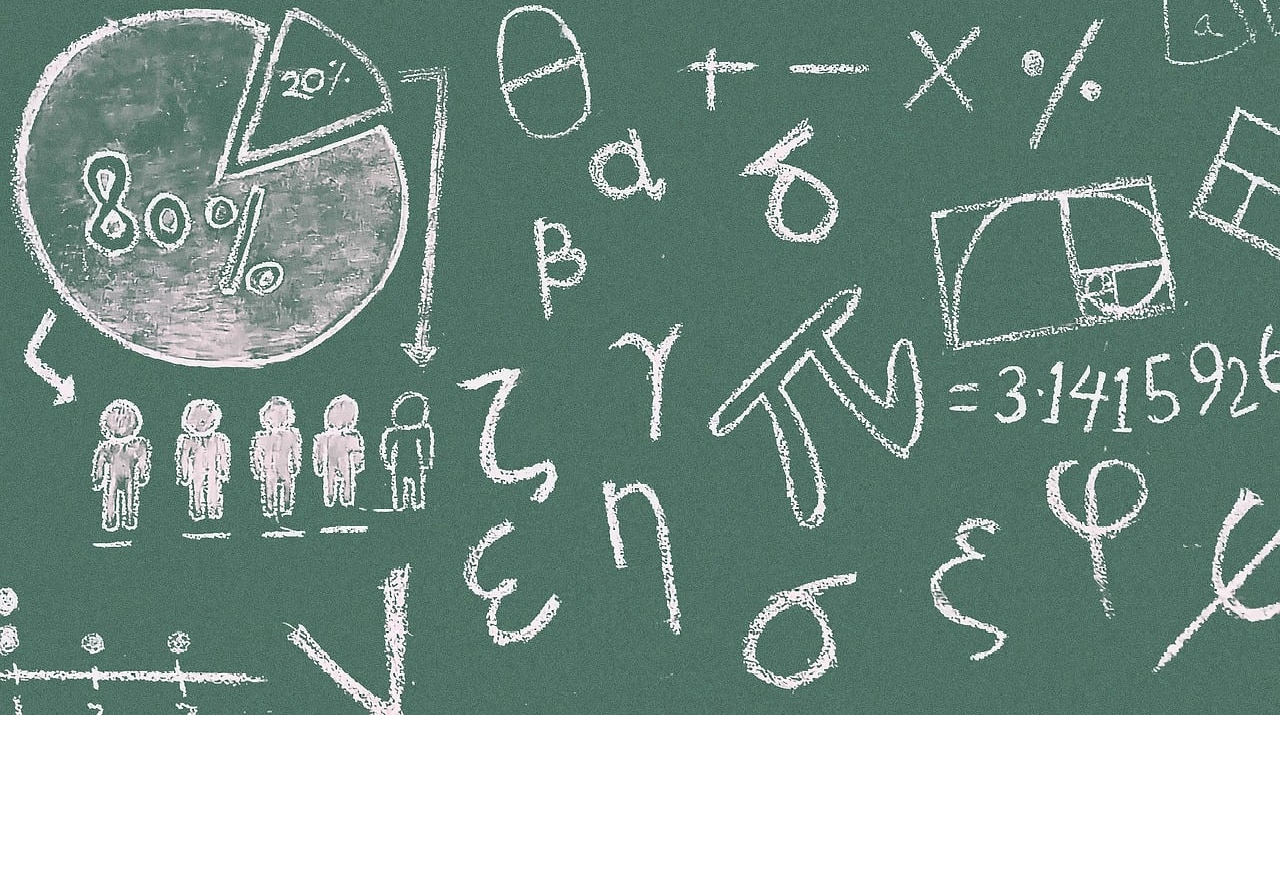 20%
80%
θ
+ − × %
a
α
δ
β
γ
π = 3·1415926
ζ
η
ε
σ
ξ
φ
ψ